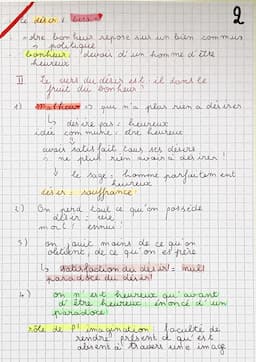 2
le désir : bien
→ être bonheur repose sur un bien commun
→ politique
bonheur : devoir d'un homme d'être
heureux
II Le vers du désir est-il dans le
fruit du bonheur ?
1) Malheur → qui n'a plus rien à désirer
↳ désire pas : heureux
idée commune : être heureux
avoir satisfait tous ses désirs
→ ne plus rien avoir à désirer !
↳ le sage : homme parfaitement
heureux
désir = souffrance
2) On perd tout ce qu'on possède
désir = vie,
mort ! ennui !
3) on jouit moins de ce qu'on
obtient, de ce qu'on espère
↳ satisfaction du désir =
paradoxe du désir !
4) on n'est heureux qu'avant
d'être heureux énoncé d'un
paradoxe !
rôle de l'imagination : faculté de
rendre présent ce qui est
absent à travers une image